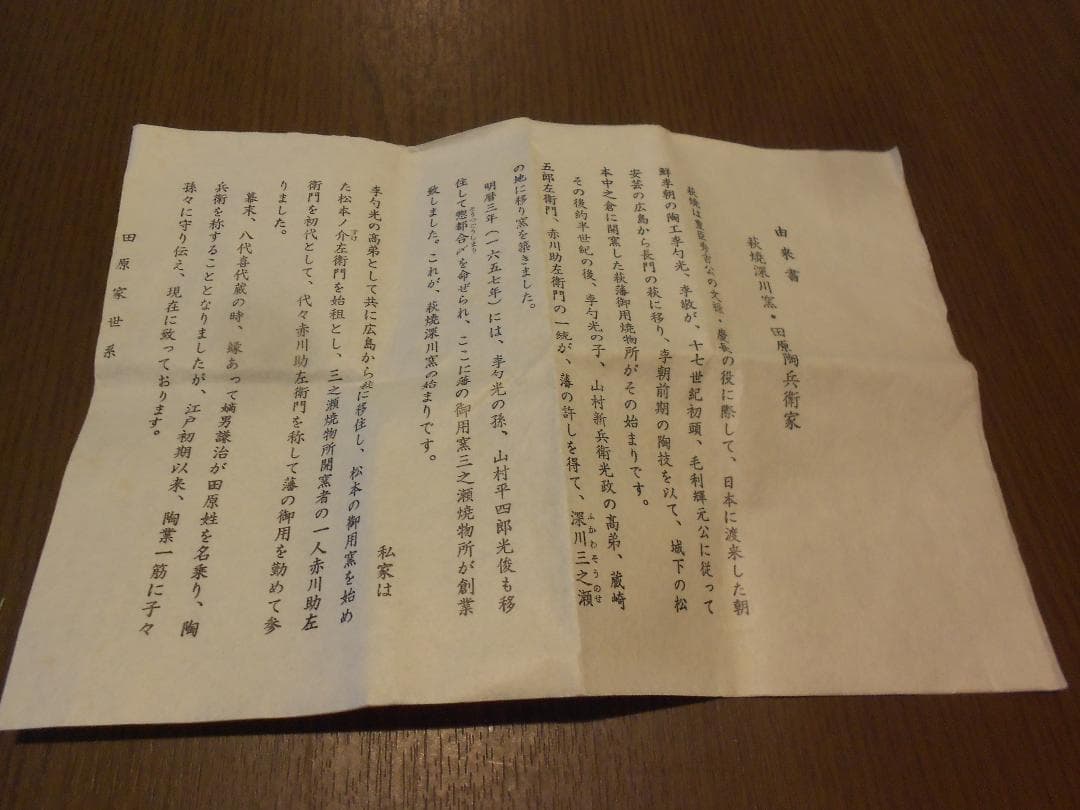 由来書
萩焼深川窯・田原陶兵衛家
萩焼は豊臣秀吉公の文禄・慶長の役に際して、日本に渡来した朝
鮮李朝の陶工李勺光、李敬が、十七世紀初頭、毛利輝元公に従って
安芸の広島から長門の萩に移り、李朝前期の陶技を以て、城下の松
本中之倉に開窯した萩藩御用焼物所がその始まりです。
その後約半世紀の後、李勺光の子、山村新兵衛光政の高弟、蔵崎
五郎左衛門、赤川助左衛門の一統が、藩の許しを得て、深川三之瀬
ふかわそうのせ
の地に移り窯を築きました。
明暦三年(一六五七年)には、李勺光の孫、山村平四郎光俊も移
住して惣都合〆を命ぜられ、ここに藩の御用窯三之瀬焼物所が創業
致しました。これが、萩焼深川窯の始まりです。
私家は
李勺光の高弟として共に広島から萩に移住し、松本の御用窯を始め
た松本ノ介左衛門を始祖とし、三之瀬焼物所開窯者の一人赤川助左
すけ
衛門を初代として、代々赤川助左衛門を称して藩の御用を勤めて参
りました。
幕末、八代喜代蔵の時、縁あって嫡男謙治が田原姓を名乗り、陶
兵衛を称することとなりましたが、江戸初期以来、陶業一筋に子々
孫々に守り伝え、現在に致っております。
田原家世系